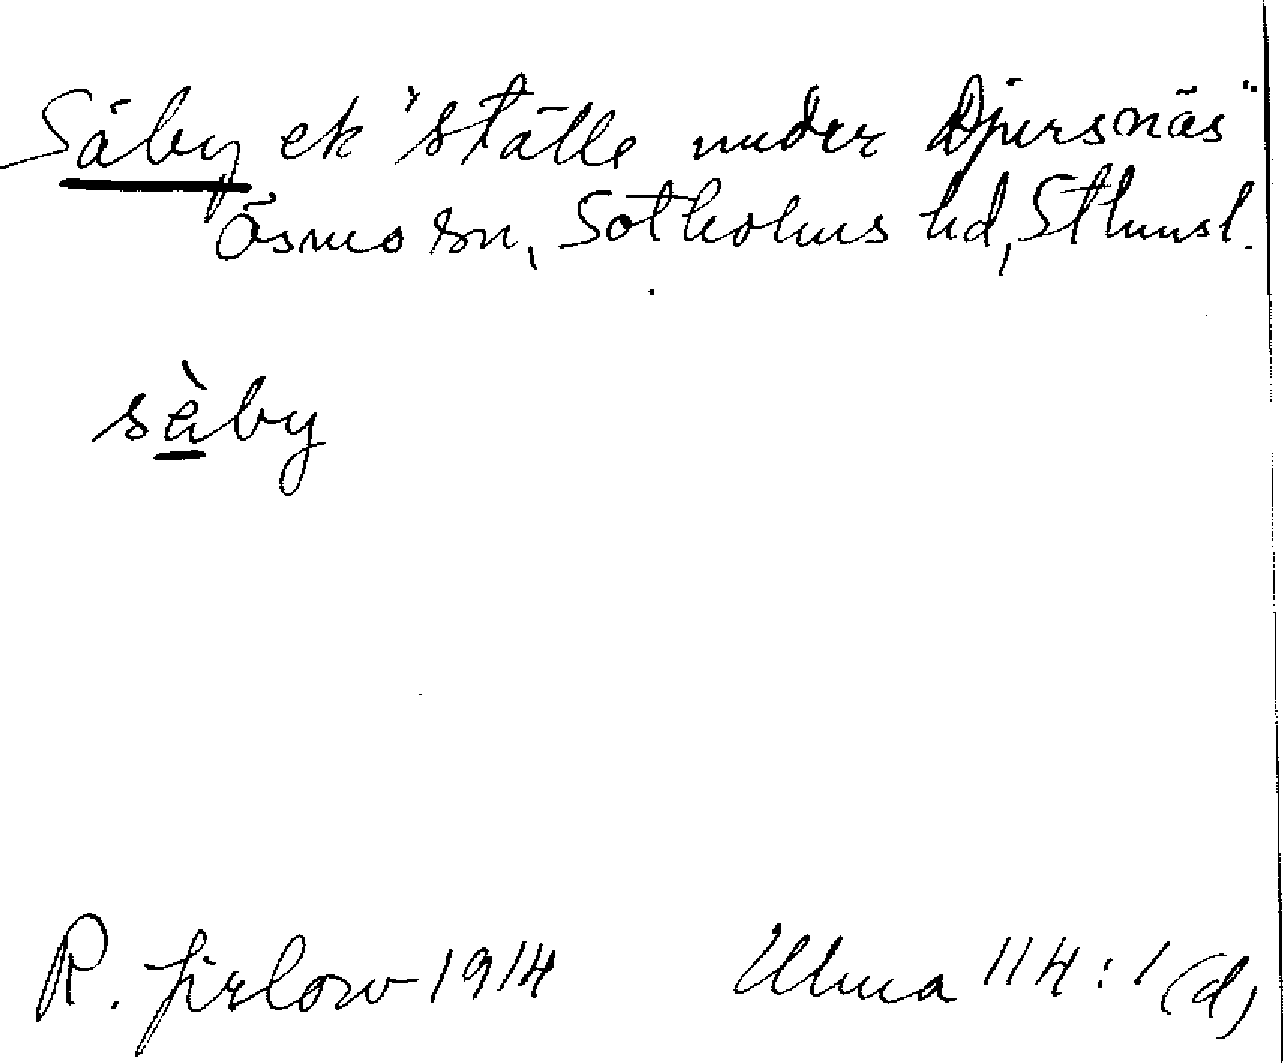 Säby ek "ställe under Djursnäs"
Ösmo sn, Sotholms hd, Sthmsl.
sæ̀by
R. Jirlow 1914 Ulma 114:1 (d)